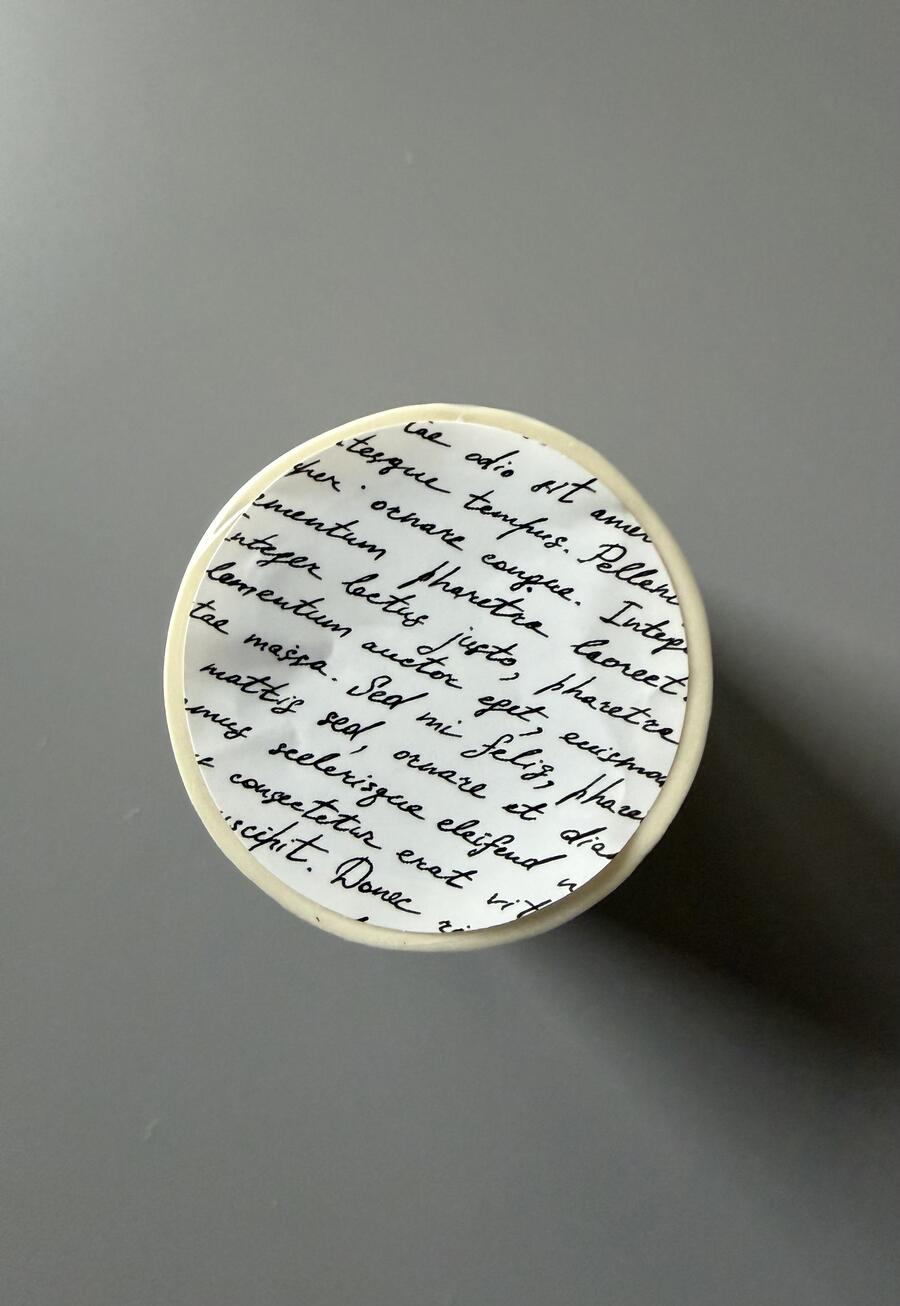 tae odio sit amet
tesque tempus. Pellent
per ornare congue. Integ
ementum pharetra laoreet.
Integer lectus justo, pharetra
lementum auctor eget, euismod
tae massa. Sed mi felis, phare
mattis sed, ornare et diam
mus scelerisque eleifend
consectetur erat vit
uscipit. Donec ri